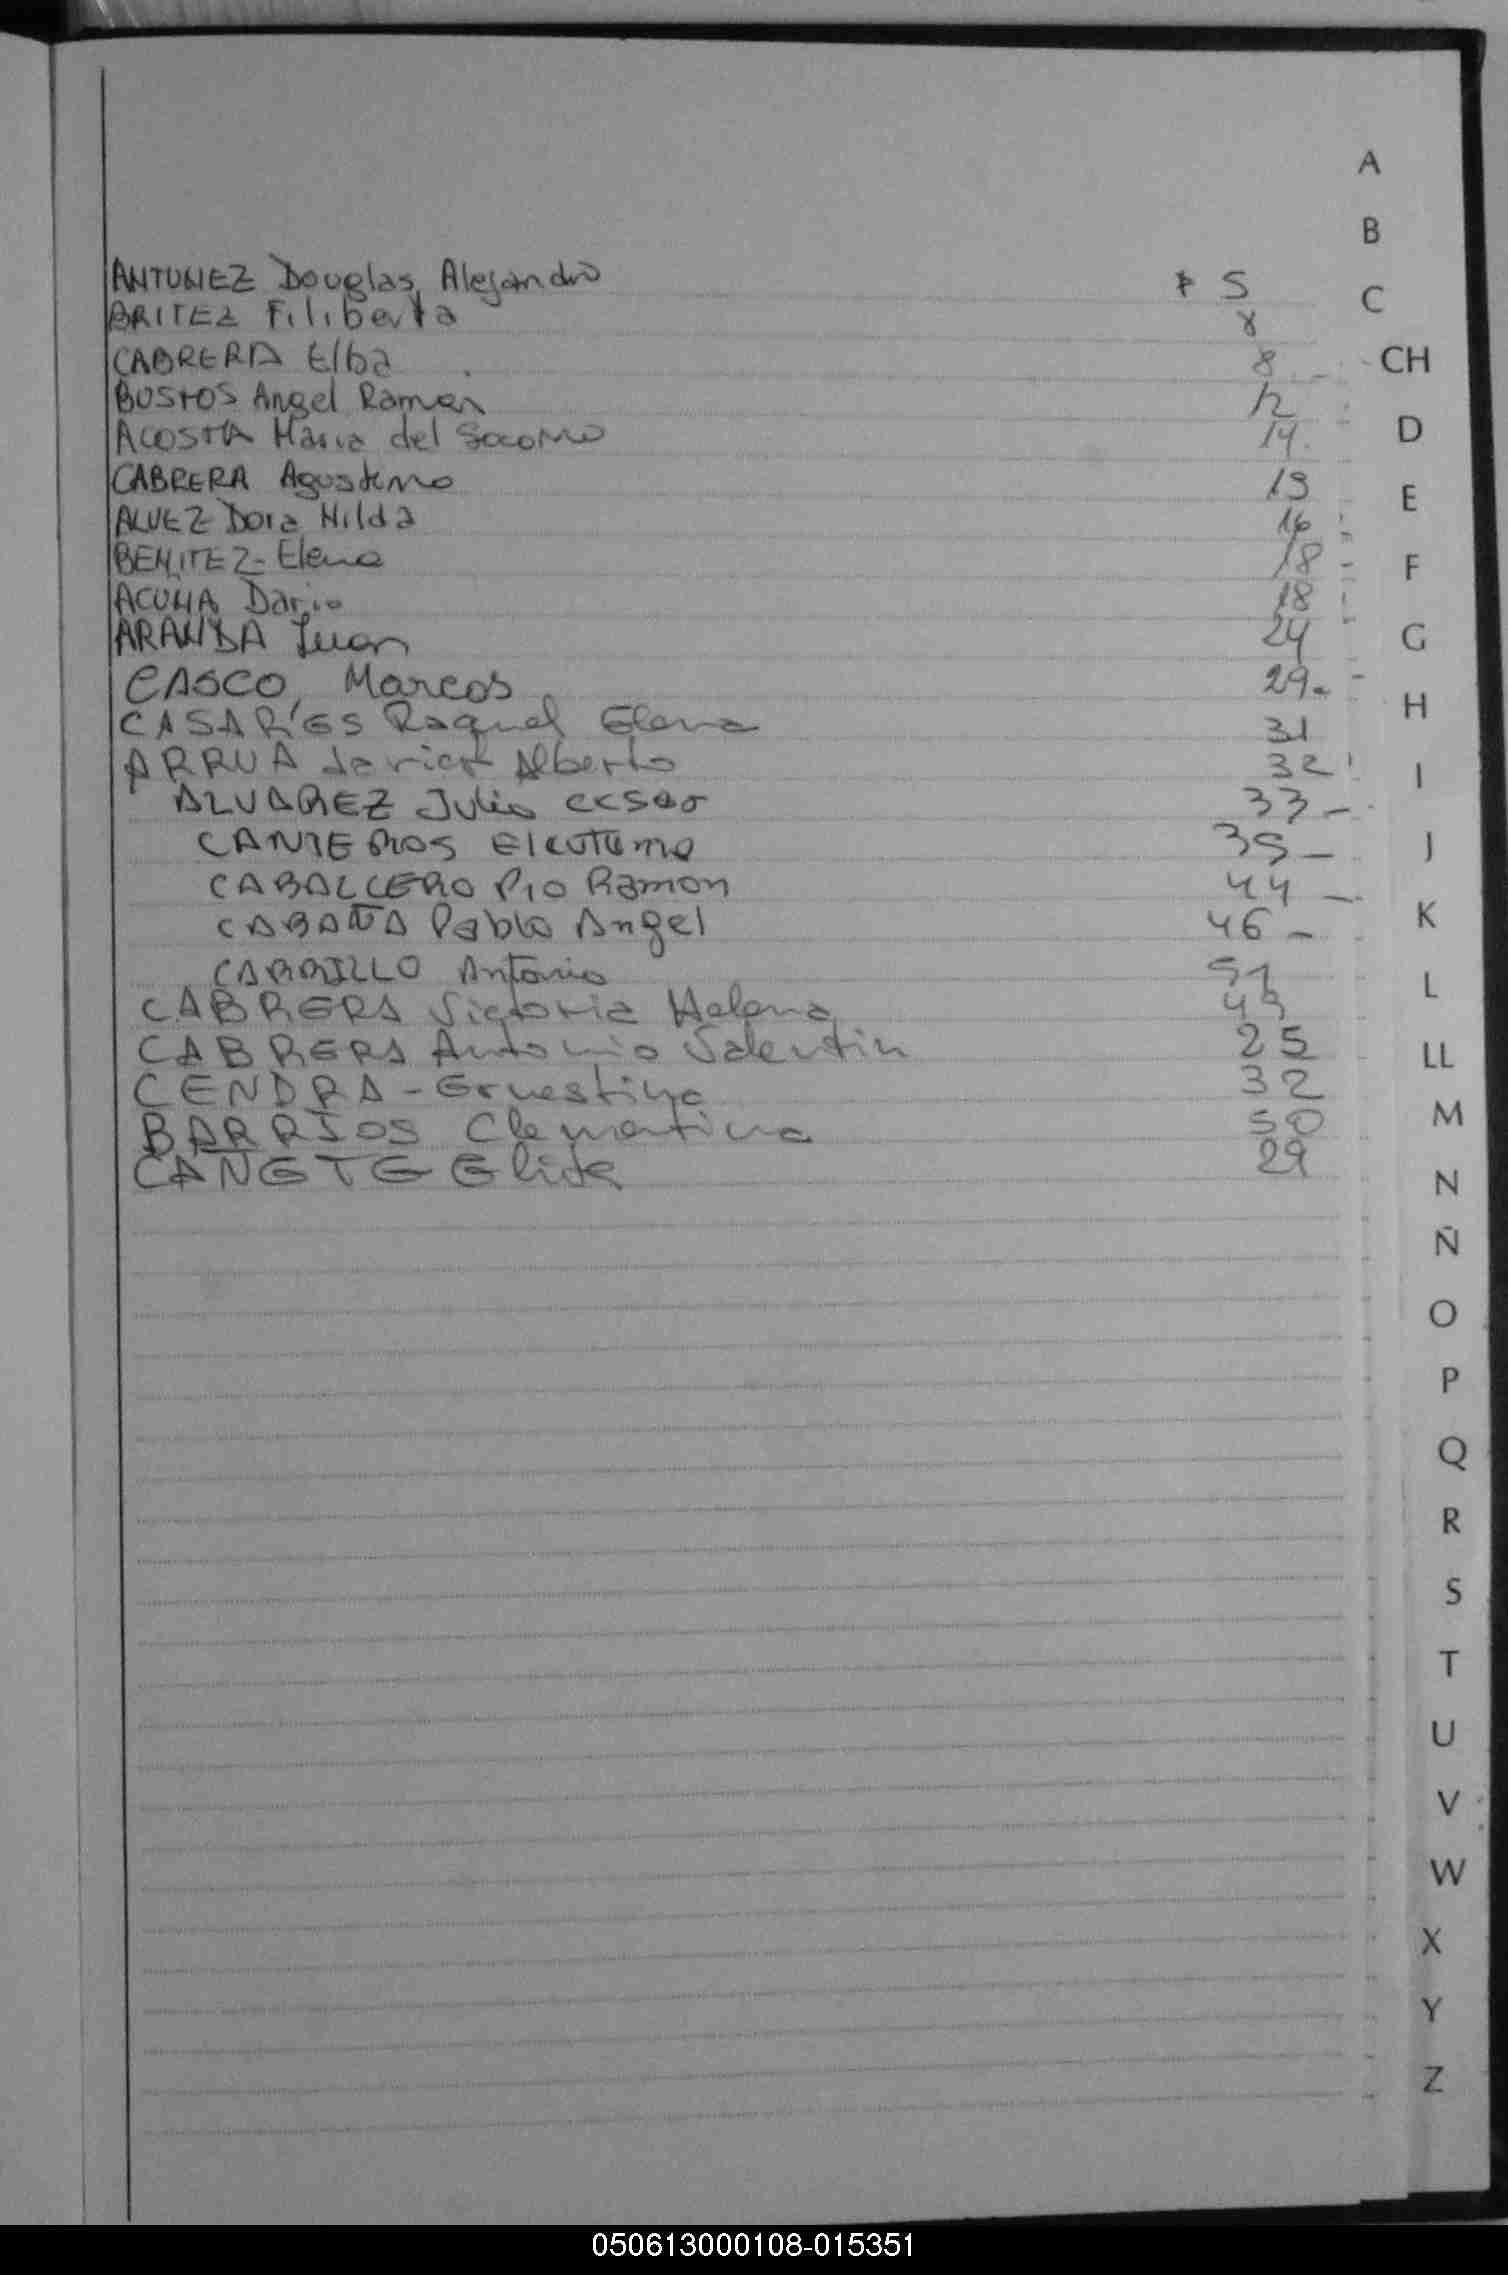 ANTUNEZ Douglas Alejandro F 5
BRITEZ Filiberta 8
CABRERA Elba 8
BUSTOS Angel Ramon 12
ACOSTA Maria del Socorro 14
CABRERA Agustino 15
ALVEZ Dora Hilda 16
BENITEZ - Elena 18
ACUÑA Dario 18
ARANDA Juan 24
CASCO, Marcos 29
CASARES Raquel Elena 31
ARRUA Javier Alberto 32
ALVAREZ Julio cesar 33
CANTEROS Eleuterio 35
CABALLERO Pio Ramon 44
CABAÑA Pablo Angel 46
CARRILLO Antonio 51
CABRERA Victoria Helena 49
CABRERA Antonio Valentin 25
CENDRA - Ernestina 32
BARRIOS Clementina 50
CAÑETE Elida 29
A
B
C
CH
D
E
F
G
H
I
J
K
L
LL
M
N
Ñ
O
P
Q
R
S
T
U
V
W
X
Y
Z
050613000108-015351